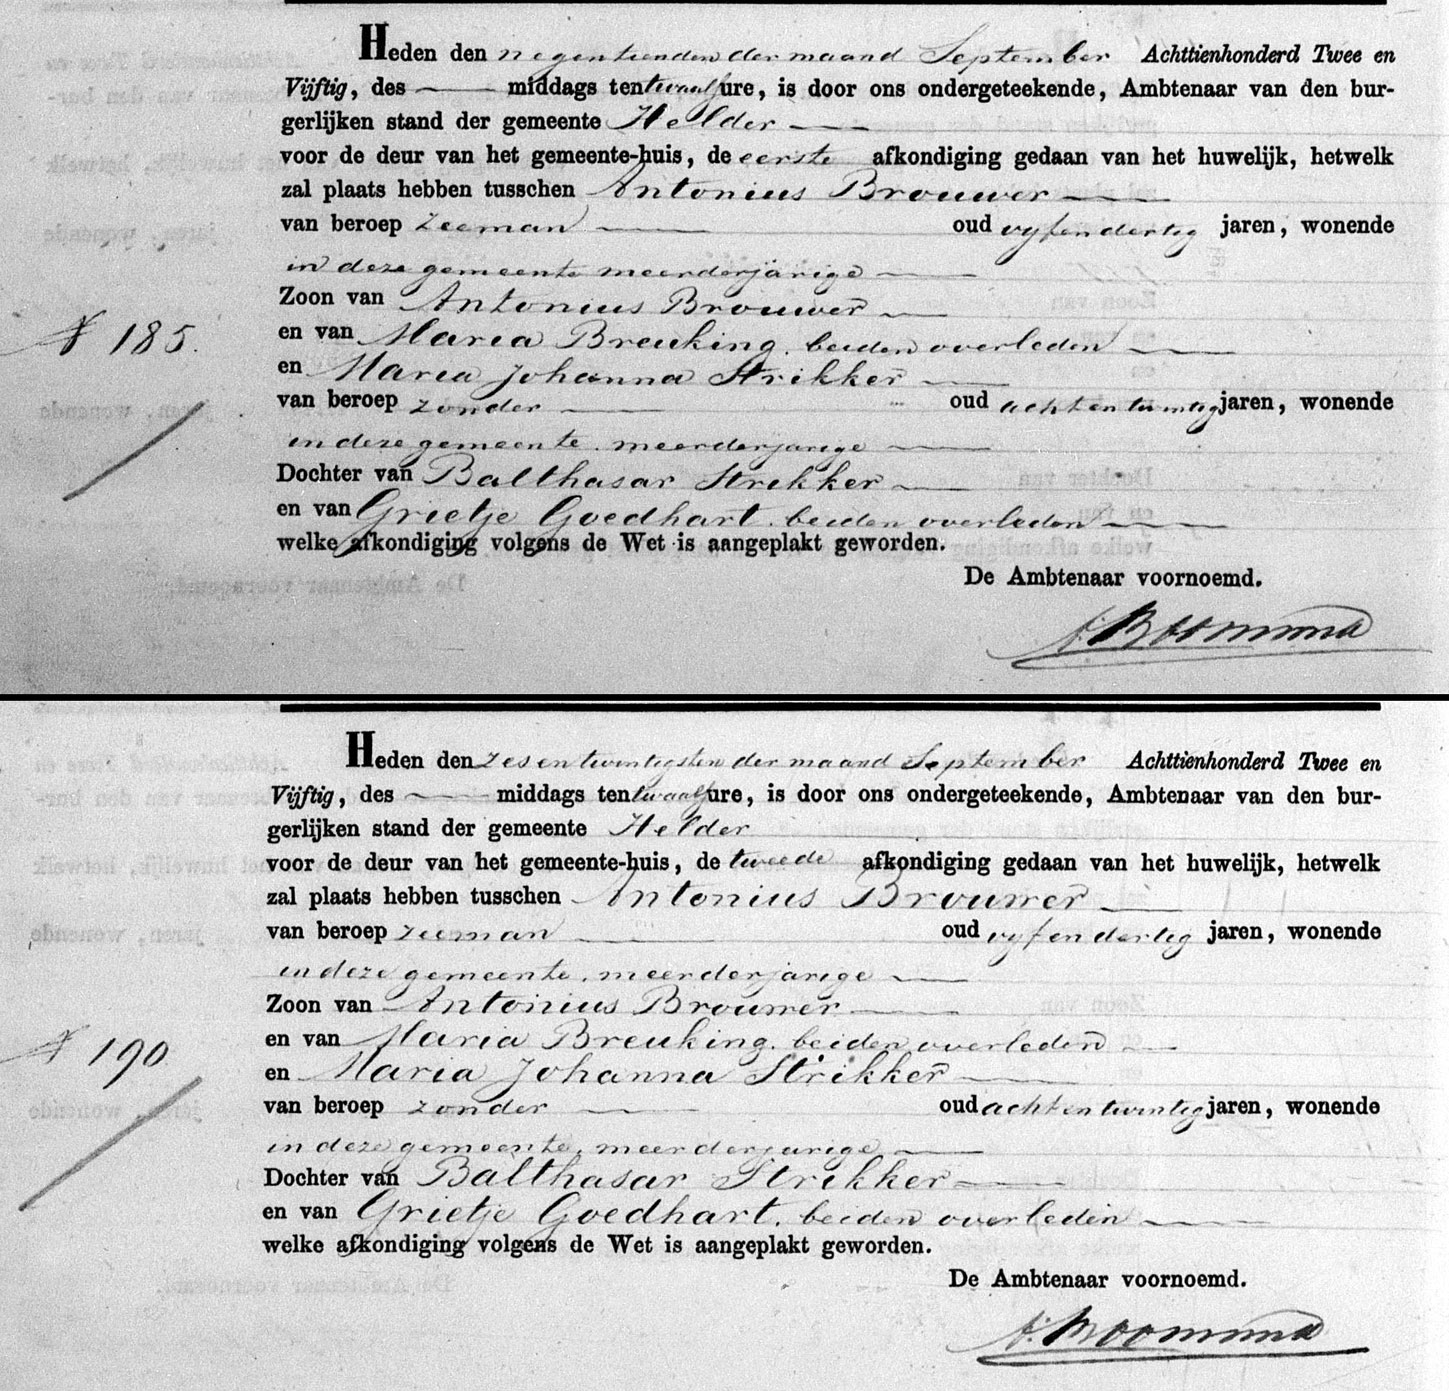 Heden den negentienden der maand September Achttienhonderd Twee en
Vijftig, des middags ten twaalf ure, is door ons ondergeteekende, Ambtenaar van den bur-
gerlijken stand der gemeente Helder
voor de deur van het gemeente-huis, de eerste afkondiging gedaan van het huwelijk, hetwelk
zal plaats hebben tusschen Antonius Brouwer
van beroep zeeman oud vyfendertig jaren, wonende
in deze gemeente meerderjarige
Zoon van Antonius Brouwer
N 185.
en van Maria Breuking, beiden overleden
en Maria Johanna Strikker
van beroep zonder oud achtentwintig jaren, wonende
in deze gemeente, meerderjarige
Dochter van Balthasar Strikker
en van Grietje Goedhart, beiden overleden
welke afkondiging volgens de Wet is aangeplakt geworden.
De Ambtenaar voornoemd.
Heden den zesentwintigsten der maand September Achttienhonderd Twee en
Vijftig, des middags ten twaalf ure, is door ons ondergeteekende, Ambtenaar van den bur-
gerlijken stand der gemeente Helder
voor de deur van het gemeente-huis, de tweede afkondiging gedaan van het huwelijk, hetwelk
zal plaats hebben tusschen Antonius Brouwer
van beroep zeeman oud vyfendertig jaren, wonende
in deze gemeente, meerderjarige
Zoon van Antonius Brouwer
en van Maria Breuking, beiden overleden
N 190
en Maria Johanna Strikker
van beroep zonder oud achtentwintig jaren, wonende
in deze gemeente, meerderjarige
Dochter van Balthasar Strikker
en van Grietje Goedhart, beiden overleden
welke afkondiging volgens de Wet is aangeplakt geworden.
De Ambtenaar voornoemd.